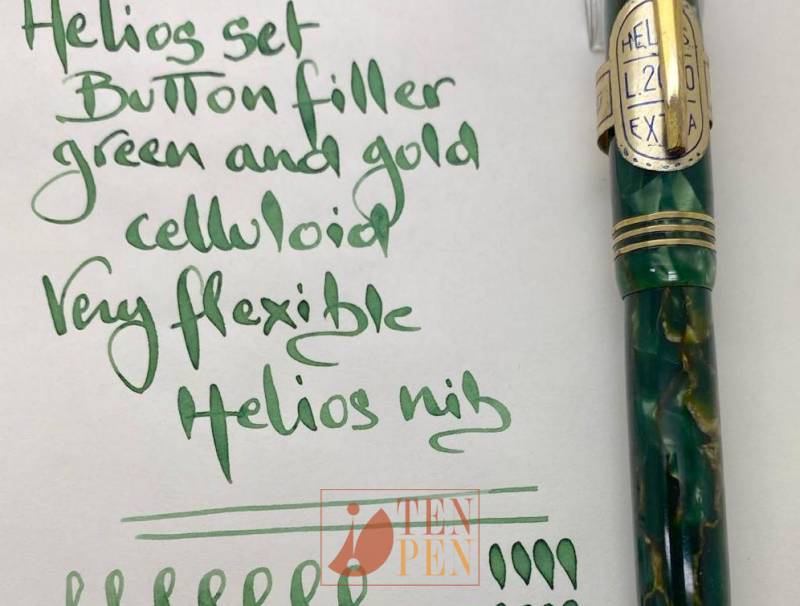 Helios set
Button filler
green and gold
celluloid
Very flexible
Helios nib
TEN
PEN
L.2